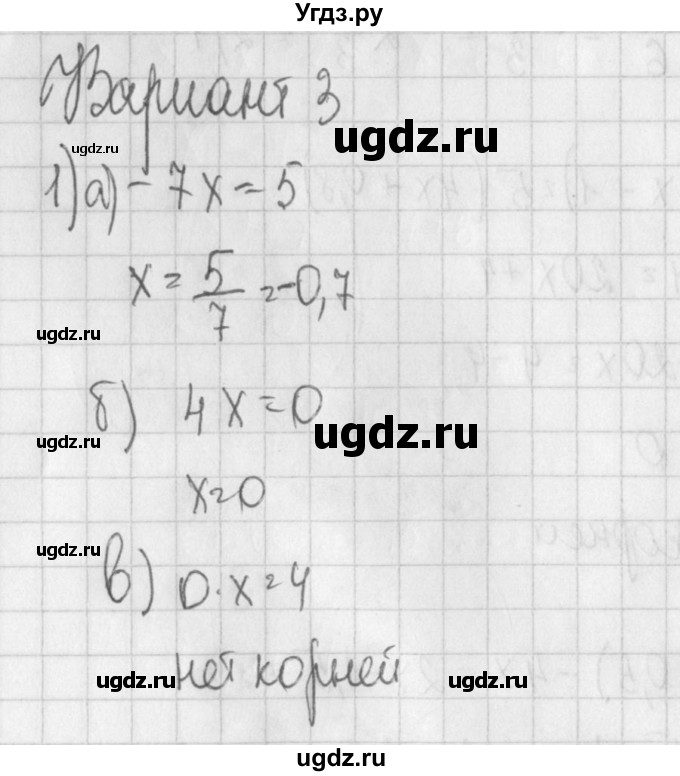 Угдз.ру
Вариант 3
ugdz.ru
ugdz.ru
1) а) -7x = 5
x = 5/7 = -0,7
ugdz.ru
б) 4x = 0
ugdz.ru
ugdz.ru
x = 0
ugdz.ru
в) 0·x = 4
нет корней
ugdz.ru
ugdz.ru
ugdz.ru